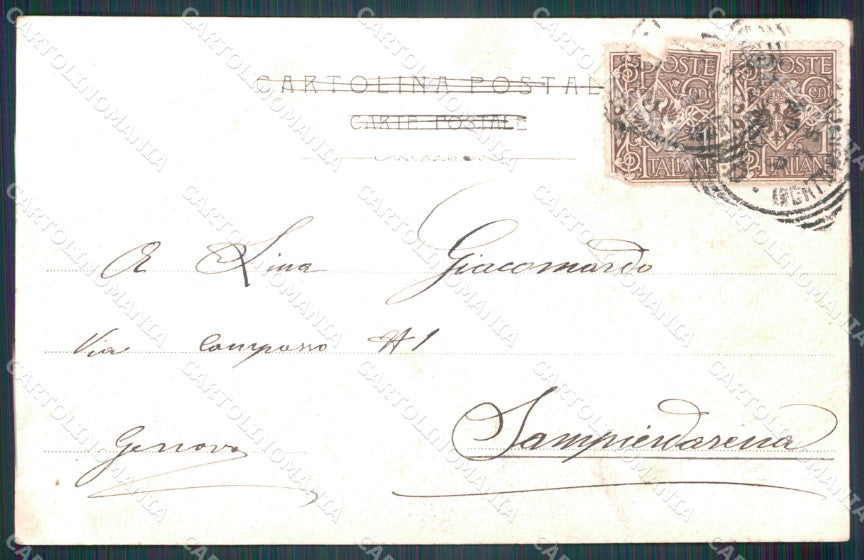 CARTOLINA POSTAL
CARTE POSTALE
POSTE
Cen
ITALIANE
POSTE
Cen
2
ITALIANE
A Lina Giacomardo
Via Campasso
Genova
Sampierdarena
CARTOLINOMANIA